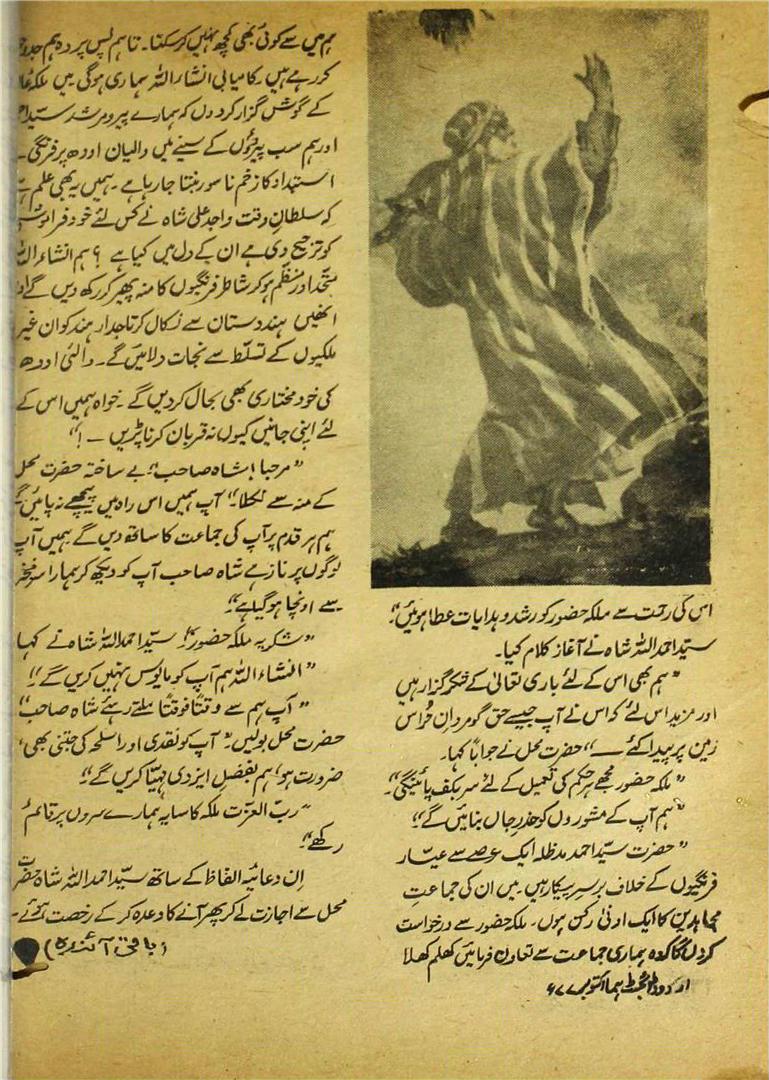 اس کی رحمت سے ملکہ حضور کو رشد و ہدایات عطا ہوئیں"۔
سید احمد اللہ شاہ نے آغاز کلام کیا۔
"ہم بھی اس کے لئے باری تعالیٰ کے شکر گزار ہیں
اور مزید اس لئے کہ اس نے آپ جیسے حق گو مردانِ حُر اس
زمین پر پیدا کئے —" حضرت محل نے جواباً کہا۔
"ملکہ حضور مجھے ہر حکم کی تعمیل کے لئے سر بکف پائینگی"۔
"ہم آپ کے مشوروں کو حذرِ جاں بنائیں گے"!
"حضرت سید احمد مدظلہ ایک عرصے سے عیّار
فرنگیوں کے خلاف برسرِ پیکار ہیں۔ میں ان کی جماعتِ
مجاہدین کا ایک ادنیٰ رکن ہوں۔ ملکہ حضور سے درخواست
کروں گا کہ وہ ہماری جماعت سے تعاون فرمائیں کھلم کھلا
اردو ڈائجسٹ ہما اکتوبر ۷۷ء
ہم میں سے کوئی بھی کچھ نہیں کر سکتا۔ تاہم پس پردہ ہم جدوجہد
کر رہے ہیں۔ کامیابی انشاء اللہ ہماری ہوگی میں ملکہ
کے گوش گزار کر دوں کہ ہمارے پیر و مرشد سید احمد
اور ہم سب پیروؤں کے سینے میں والیانِ اودھ پر فرنگی
استبداد کا زخم ناسور بنتا جا رہا ہے۔ ہمیں یہ بھی علم ہے
کہ سلطانِ وقت واجد علی شاہ نے کس لئے خود فراموشی
کو ترجیح دی ہے ان کے دل میں کیا ہے؟ ہم انشاء اللہ
متحد اور منظّم ہو کر شاطر فرنگیوں کا منہ پھیر کر رکھ دیں گے اور
انھیں ہندوستان سے نکال کر تاجدارِ ہند کو ان غیر
ملکیوں کے تسلّط سے نجات دلائیں گے۔ والئی اودھ
کی خود مختاری بھی بحال کر دیں گے۔ خواہ ہمیں اس کے
لئے اپنی جانیں کیوں نہ قربان کرنا پڑیں —!"
"مرحبا! شاہ صاحب"۔ بے ساختہ حضرت محل
کے منہ سے نکلا۔ "آپ ہمیں اس راہ میں پیچھے نہ پائیں گے
ہم ہر قدم پر آپ کی جماعت کا ساتھ دیں گے۔ ہمیں آپ
لوگوں پر ناز ہے شاہ صاحب آپ کو دیکھ کر ہمارا سر فخر
سے اونچا ہو گیا ہے"۔
"شکریہ ملکہ حضور"! سید احمد اللہ شاہ نے کہا
"انشاء اللہ ہم آپ کو مایوس نہیں کریں گے"!
"آپ ہم سے وقتاً فوقتاً ملتے رہئے شاہ صاحب"
حضرت محل بولیں۔ "آپ کو نقدی اور اسلحہ کی جتنی بھی
ضرورت ہو، ہم بفضلِ ایزدی مہیّا کریں گے"۔
"ربّ العزت ملکہ کا سایہ ہمارے سروں پر قائم
رکھے"۔
اِن دعائیہ الفاظ کے ساتھ سید احمد اللہ شاہ حضرت
محل سے اجازت لے کر پھر آنے کا وعدہ کر کے رخصت ہوئے۔
(باقی آئندہ)